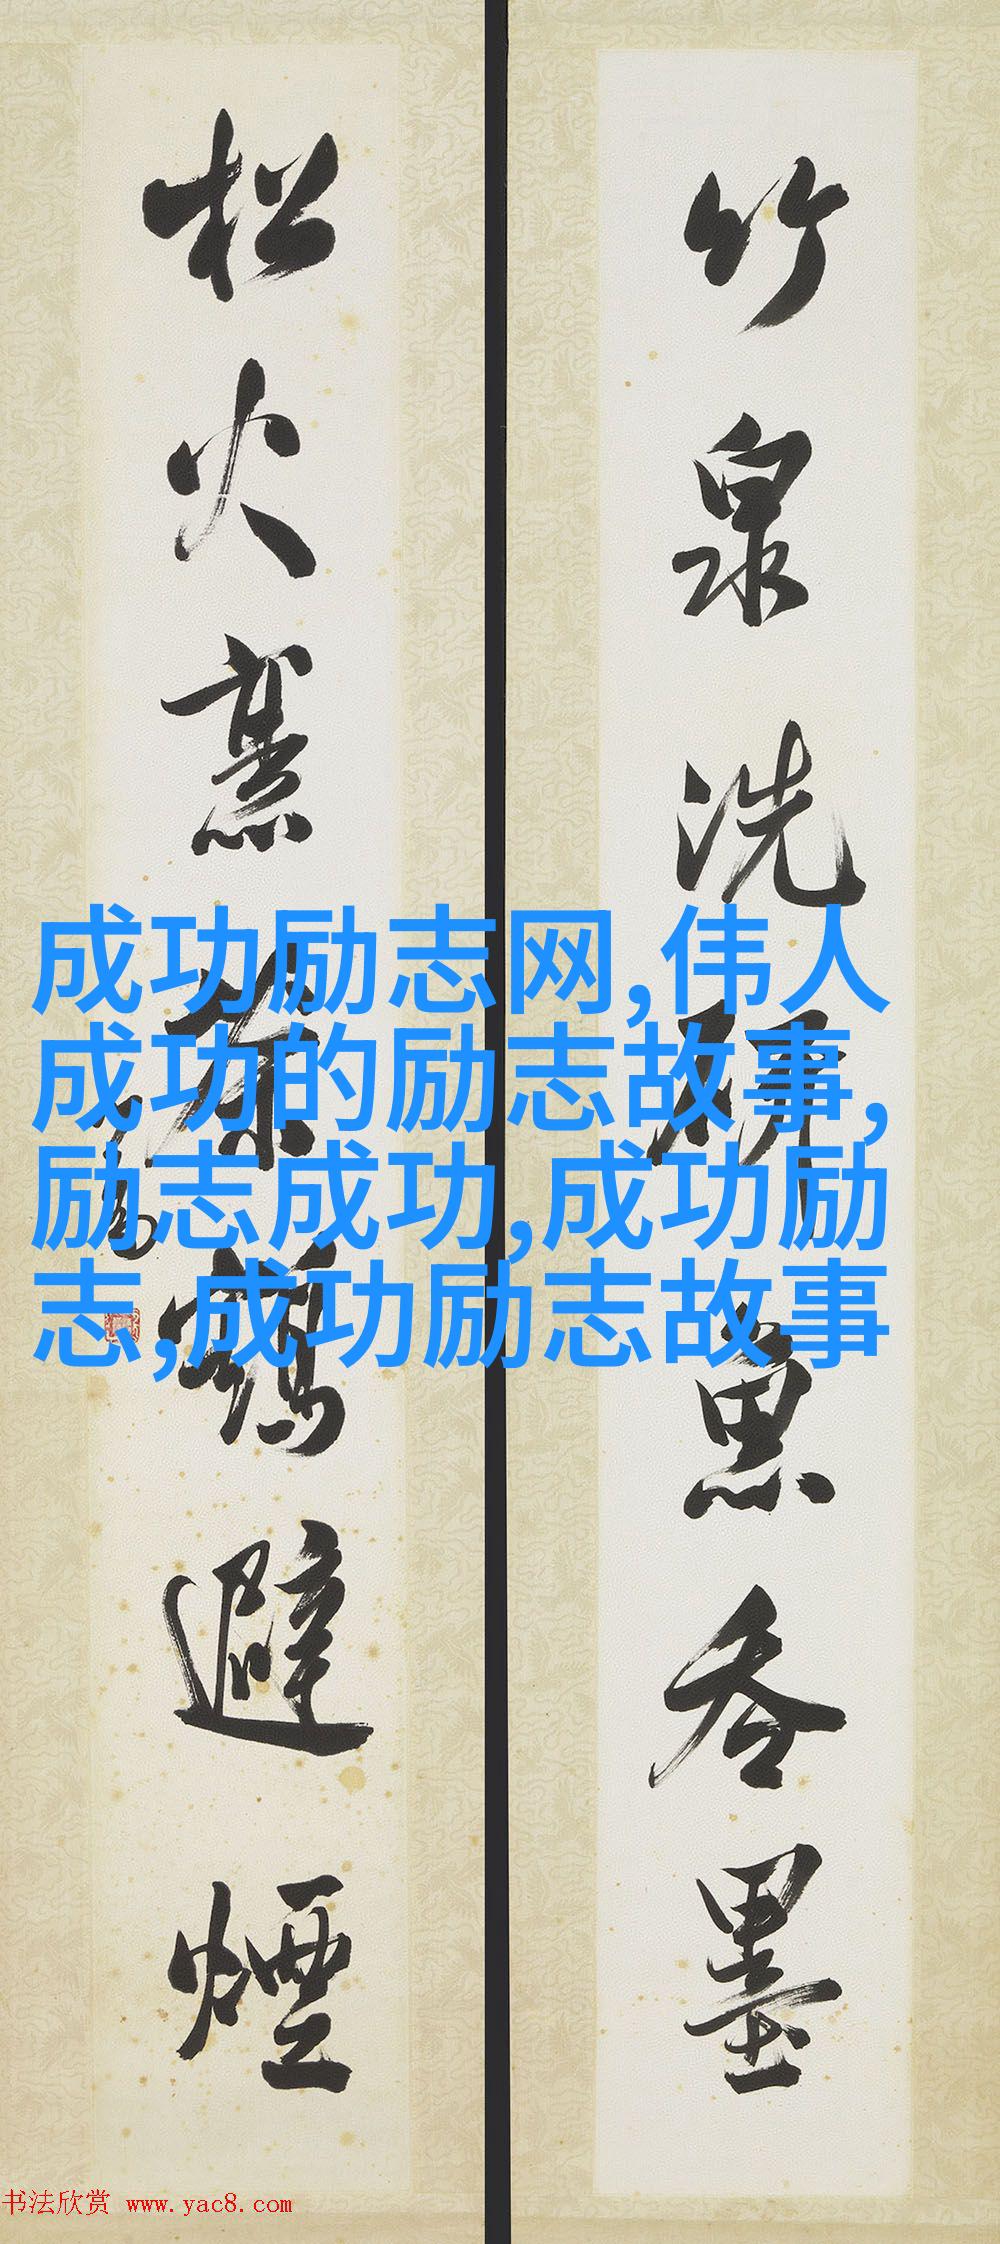 竹泉洗研魚吞墨
松火熏茶鶴避煙
成功励志网,伟人
成功的励志故事,
励志成功,成功励
志,成功励志故事
书法欣赏 www.yac8.com